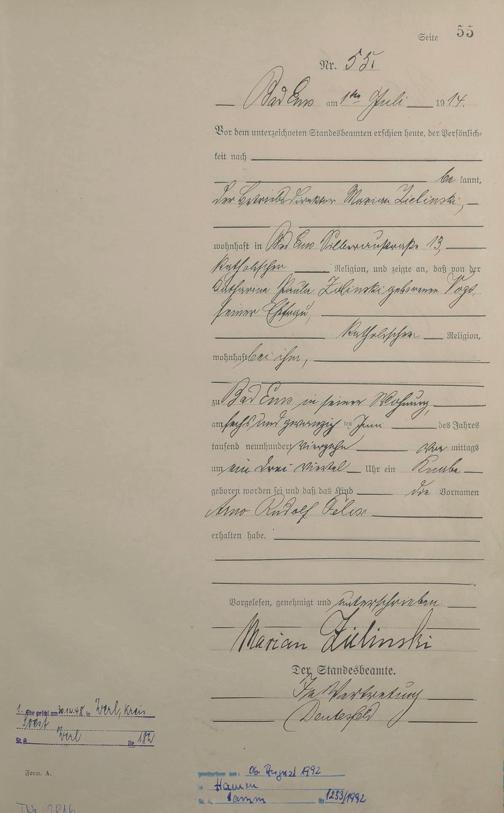 Seite 55
Nr. 55.
Bad Ems am 1ten Juli 1914.
Vor dem unterzeichneten Standesbeamten erschien heute, der Persönlich-
keit nach
be kannt,
der Betriebsdirektor Marian Zielinski,
wohnhaft in Bad Ems 13,
katholischer Religion, und zeigte an, daß von der
Catharina Paula Zielinski geborenen Vogt
seiner Ehefrau,
katholischer Religion,
wohnhaft bei ihm,
zu Bad Ems in seiner Wohnung,
am sechs und zwanzig ten Juni des Jahres
tausend neunhundert vierzehn Vor mittags
um ein drei viertel Uhr ein Knabe
geboren worden sei und daß das Kind die Vornamen
Arno Rudolf Felix
erhalten habe.
Vorgelesen, genehmigt und unterschrieben
Marian Zielinski
Der Standesbeamte.
In Vertretung
1. Ehe geschl. am in Werl, Kreis
Soest
St. A. Werl Nr. 182
Form. A.
gestorben am: 06. August 1992
in Hamm
St. A. Hamm Nr. 1233/1992